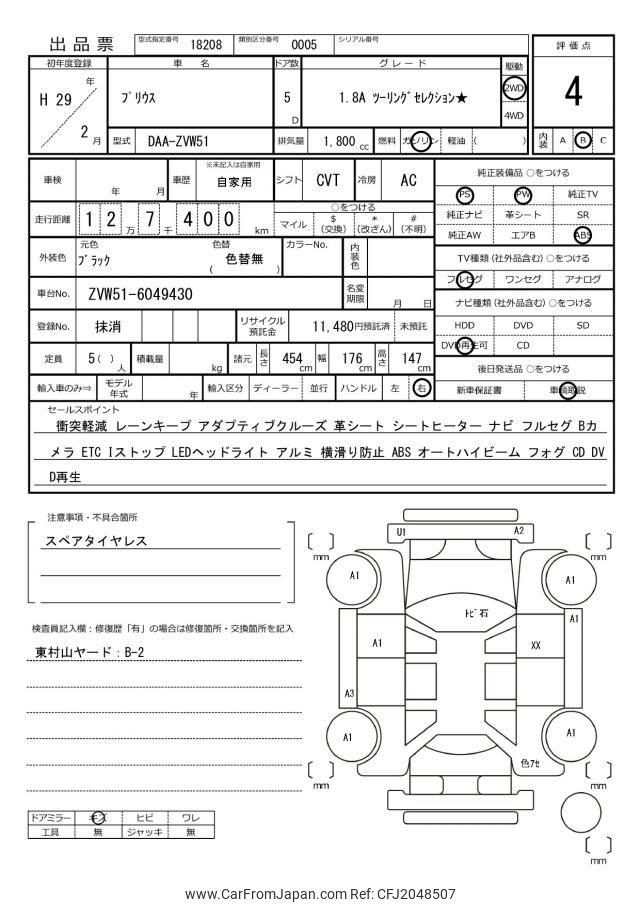 出品票 型式指定番号 18208 類別区分番号 0005 シリアル番号
評価点
4
内装 A B C
初年度登録 車名 ドア数 グレード 駆動
H 29 年 2 月
プリウス 5 D 1.8A ツーリングセレクション★ 2WD 4WD
型式 DAA-ZVW51 排気量 1,800 cc 燃料 ガソリン 軽油 ( )
車検 年 月 車歴 ※未記入は自家用 自家用 シフト CVT 冷房 AC
走行距離 12万 7千 400 km
○をつける
マイル $(交換) *(改ざん) #(不明)
外装色 元色 ブラック 色替 ( 色替無 ) カラーNo. 内装色
車台No. ZVW51-6049430 名変期限 月 日
登録No. 抹消 リサイクル預託金 11,480円預託済 未預託
定員 5( )人 積載量 kg 諸元 長さ 454cm 幅 176cm 高さ 147cm
輸入車のみ⇒ モデル年式 年 輸入区分 ディーラー 並行 ハンドル 左 右
純正装備品 ○をつける
PS PW 純正TV
純正ナビ 革シート SR
純正AW エアB ABS
TV種類(社外品含む) ○をつける
フルセグ ワンセグ アナログ
ナビ種類(社外品含む) ○をつける
HDD DVD SD
DVD再生可 CD
後日発送品 ○をつける
新車保証書 車輌取説
セールスポイント
衝突軽減 レーンキープ アダプティブクルーズ 革シート シートヒーター ナビ フルセグ Bカ
メラ ETC Iストップ LEDヘッドライト アルミ 横滑り防止 ABS オートハイビーム フォグ CD DV
D再生
注意事項・不具合箇所
スペアタイヤレス
検査員記入欄：修復歴「有」の場合は修復箇所・交換箇所を記入
東村山ヤード：B-2
ドアミラー キズ ヒビ ワレ
工具 無 ジャッキ 無
U1 A2
mm mm
A1 A1
トビ石
A1 A1 XX
A3
A1 A1
色アセ
mm mm
mm
www.CarFromJapan.com Ref: CFJ2048507